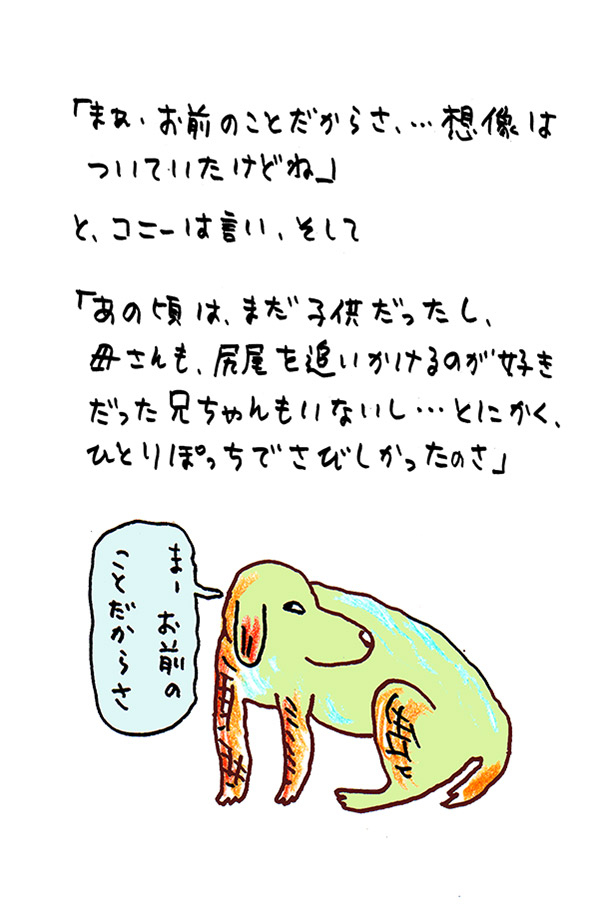 「まぁ、お前のことだからさ、…想像は
ついていたけどね」
と、コニーは言い、そして
「あの頃は、まだ子供だったし、
母さんも、尻尾を追いかけるのが好き
だった兄ちゃんもいないし…とにかく、
ひとりぽっちでさびしかったのさ」
まー お前の
ことだからさ